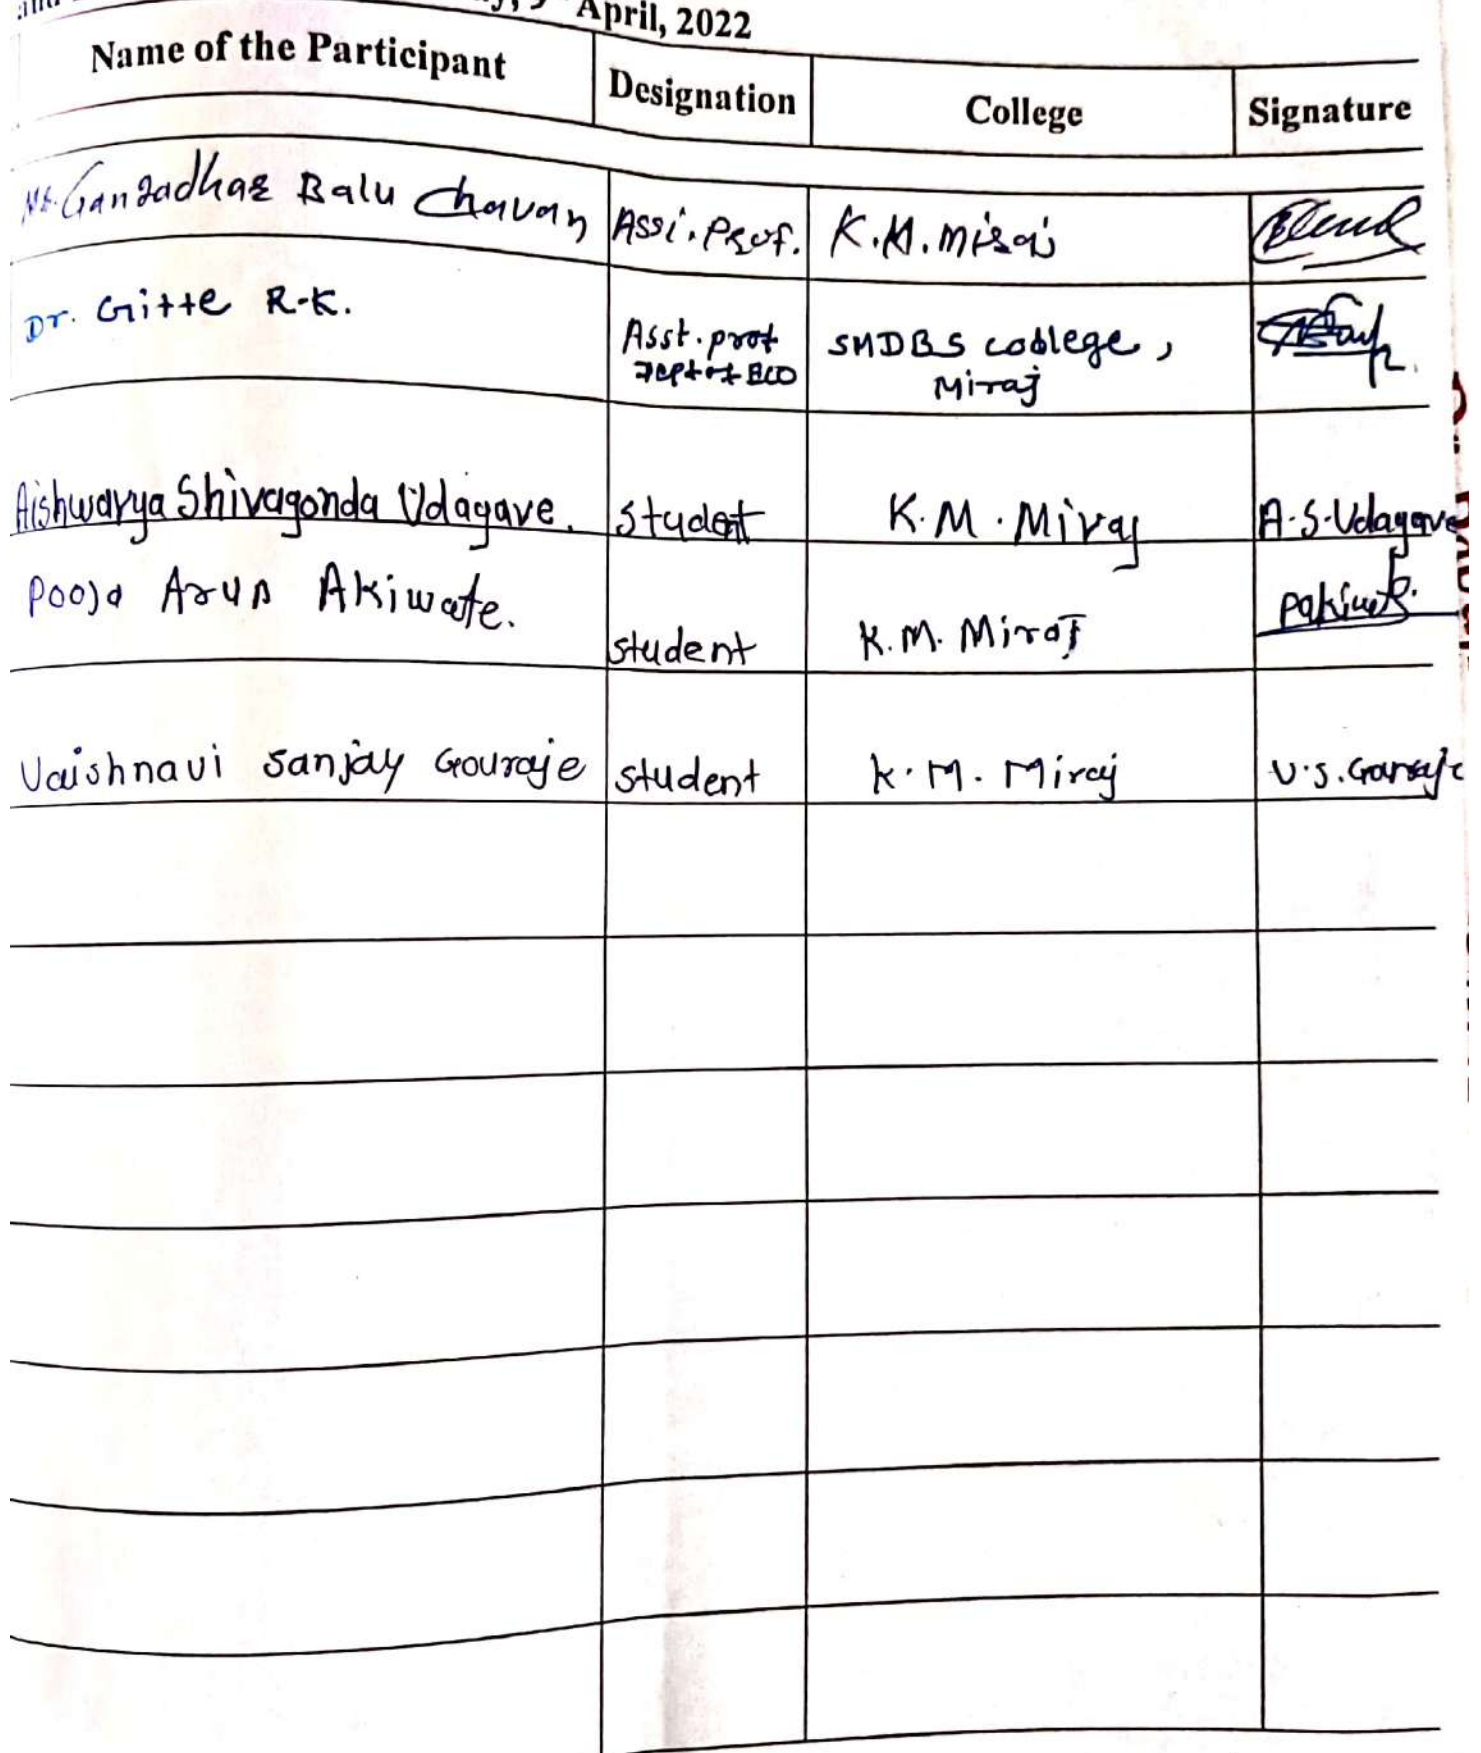 April, 2022
Name of the Participant Designation College Signature
Mr. Gangadhar Balu Chavan Assi. Prof. K.M. Miraj
Dr. Gitte R.K. Asst. prof SMDBS college, 
Dept of ECO Miraj
Aishwarya Shivagonda Udagave. Student K.M. Miraj A.S. Udagave
Pooja Arun Akiwate. student K.M. Miraj Pakiwate.
Vaishnavi Sanjay Gouraje student K.M. Miraj V.S. Gouraje